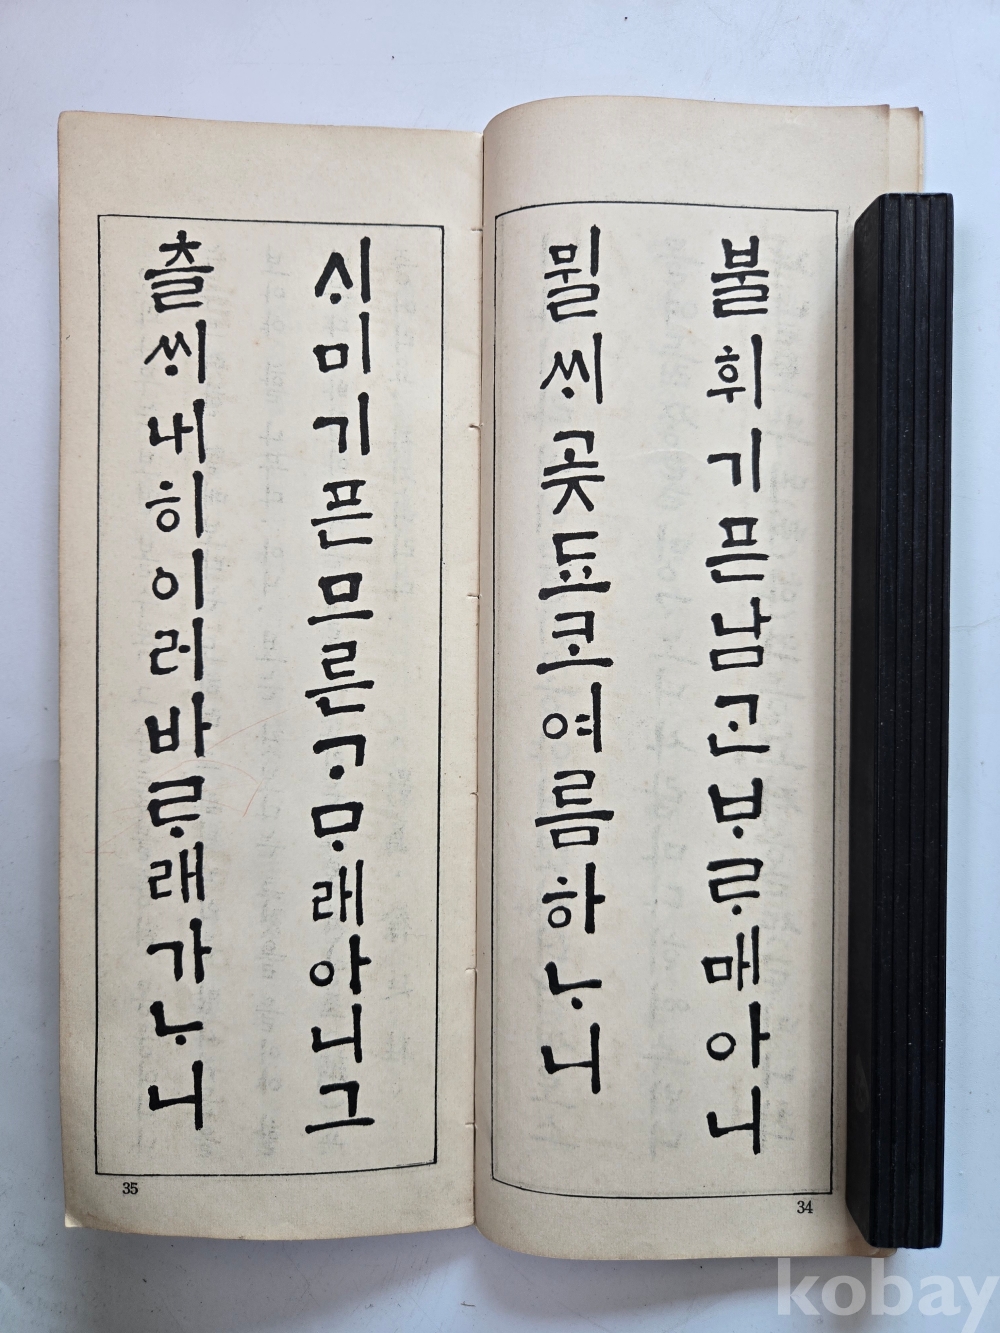 불휘기픈남ᄀᆞᆫᄇᆞᄅᆞ매아니
뮐ᄊᆡ곶됴코여름하ᄂᆞ니
34
ᄉᆡ미기픈므른ᄀᆞᄆᆞ래아니그
츨ᄊᆡ내히이러바ᄅᆞ래가ᄂᆞ니
35
kobay